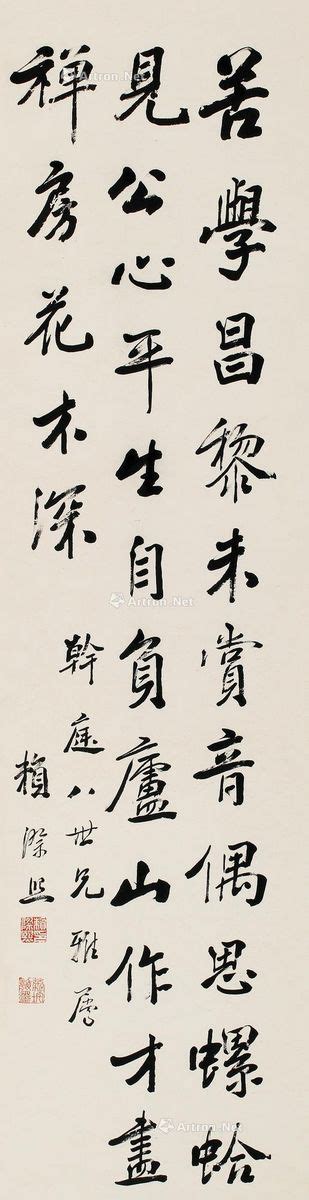 苦學昌黎未賞音偶思螺蛤
見公心平生自負廬山作才盡
禪房花木深
幹庭八世兄雅屬
賴際熙
Artron.Net
Artron.Net
Artron.Net